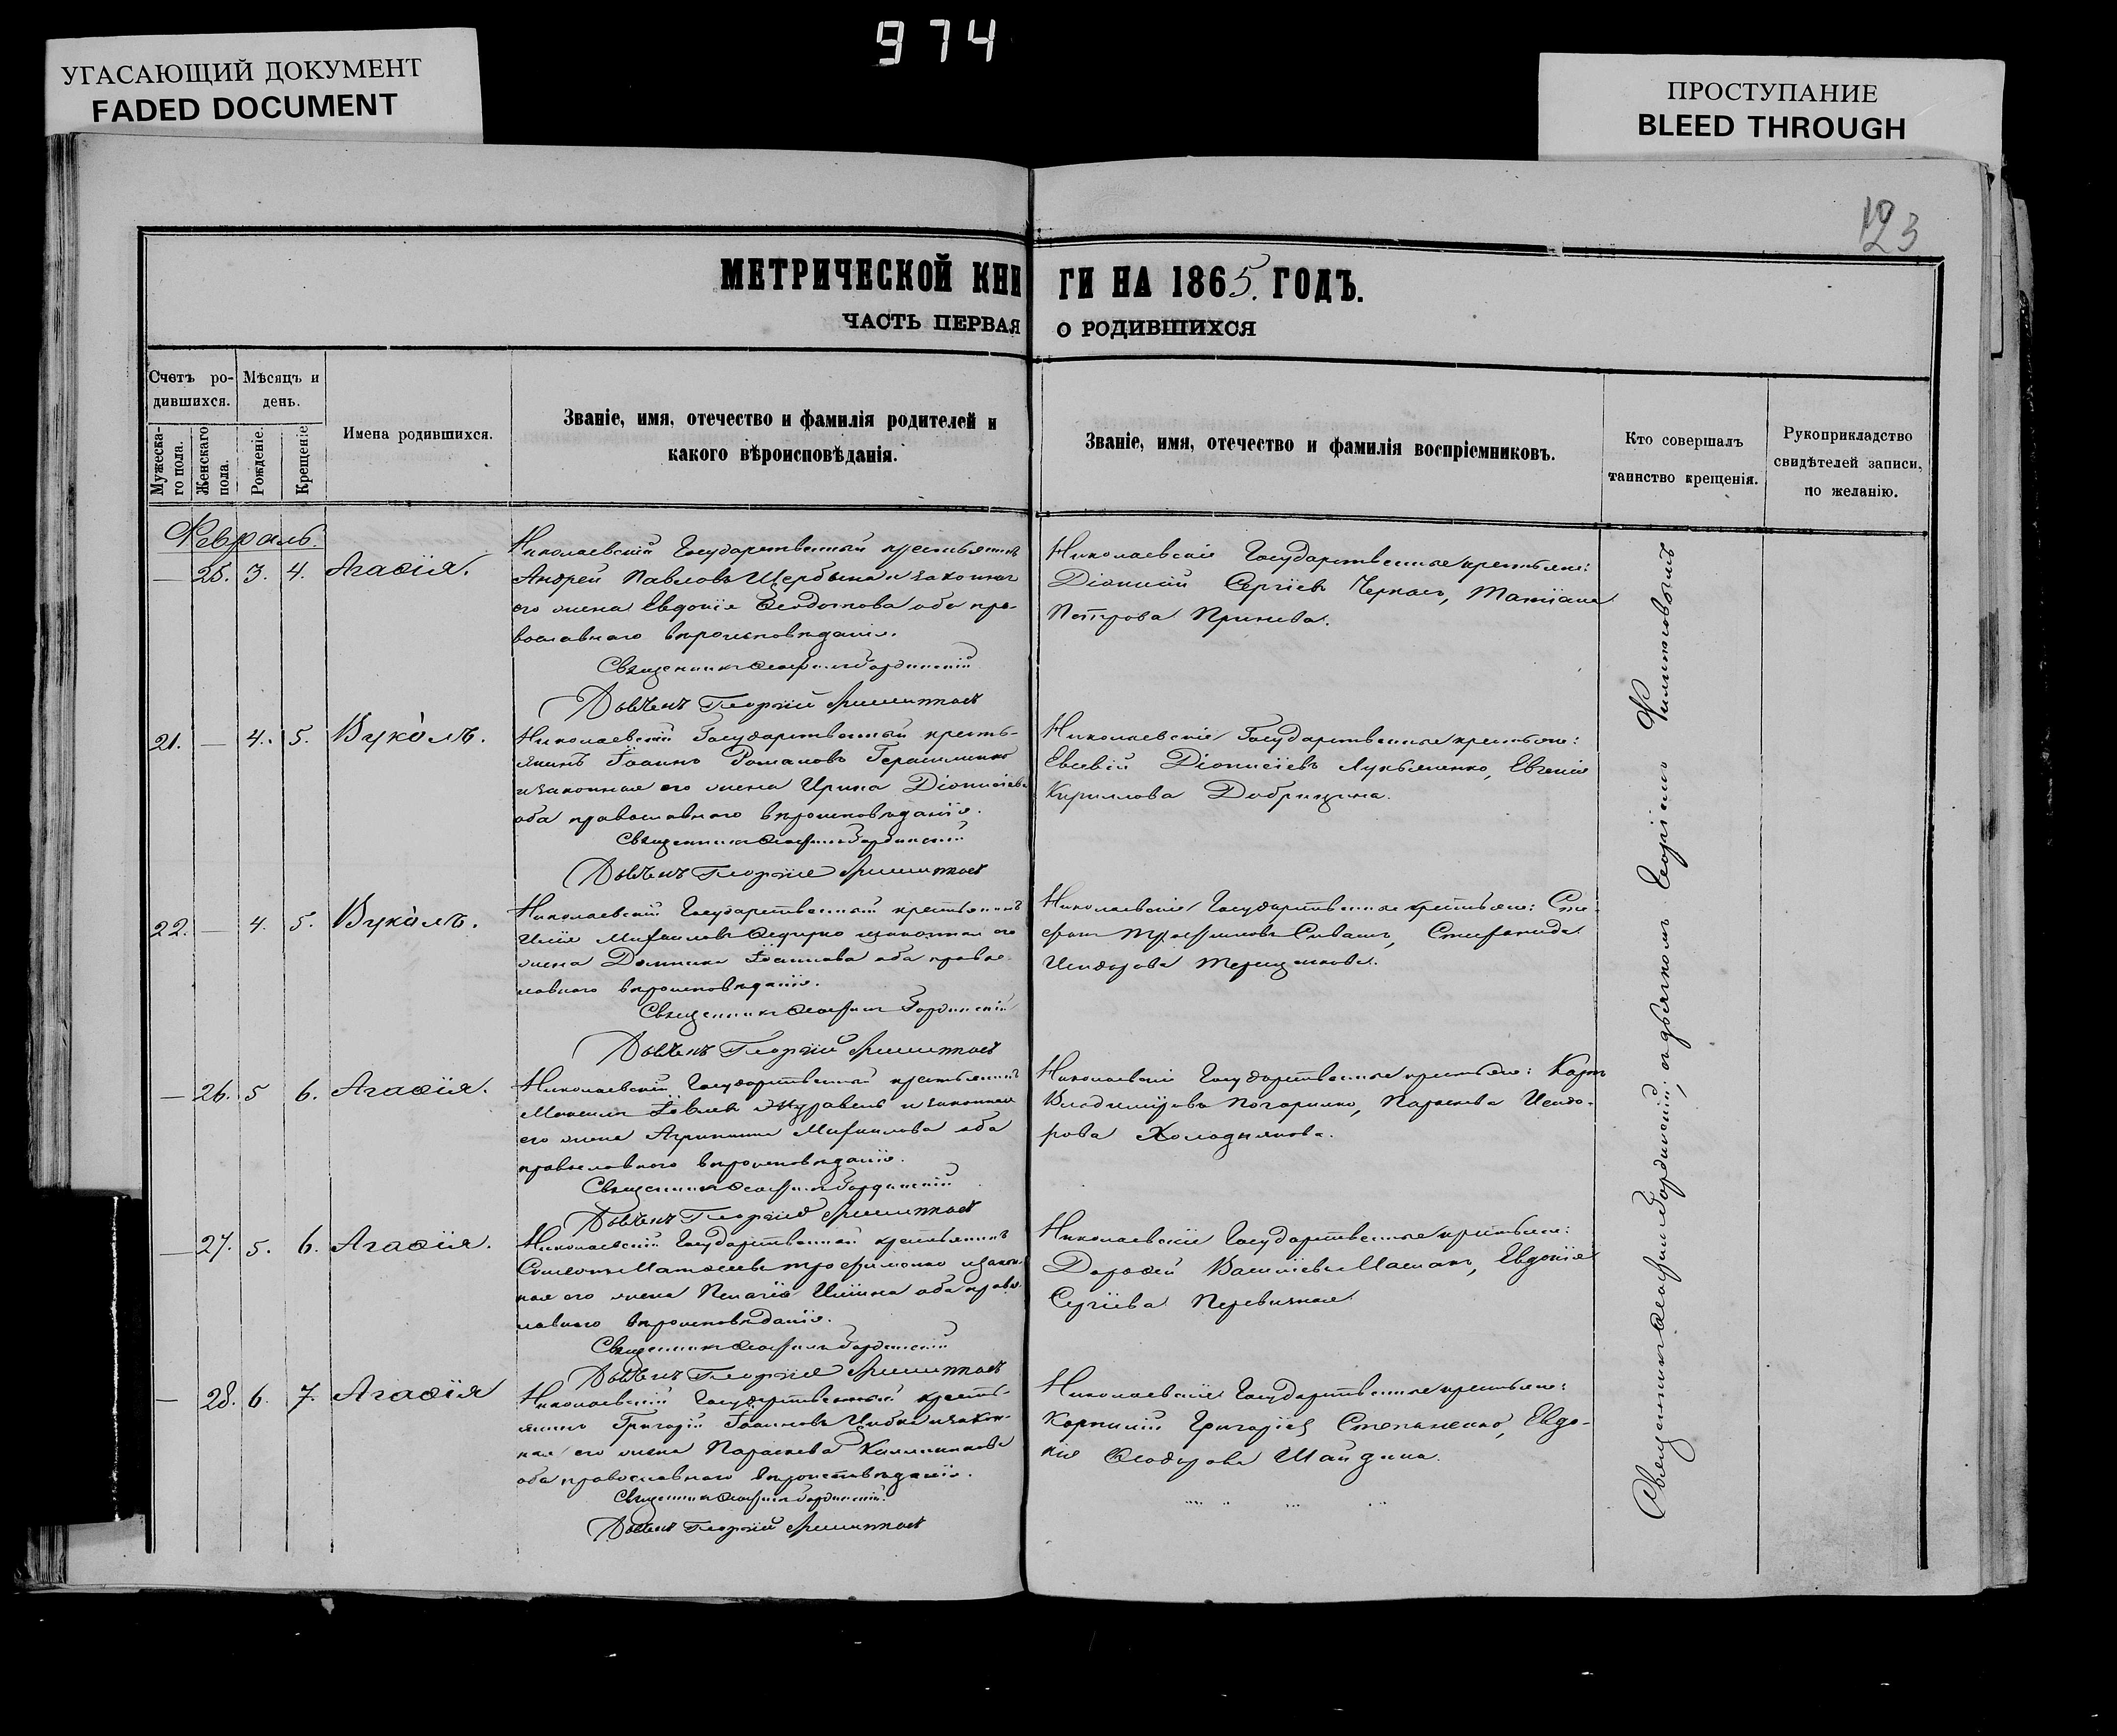 974
УГАСАЮЩИЙ ДОКУМЕНТ
FADED DOCUMENT
ПРОСТУПАНИЕ
BLEED THROUGH
123
МЕТРИЧЕСКОЙ КНИГИ НА 1865. ГОДЪ.
ЧАСТЬ ПЕРВАЯ О РОДИВШИХСЯ
Счетъ ро-
дившихся.
Мѣсяцъ и
день.
Мужеска-
го пола.
Женскаго
пола.
Рожденіе.
Крещеніе
Имена родившихся.
Званіе, имя, отечество и фамилія родителей и
какого вѣроисповѣданія.
Званіе, имя, отечество и фамилія воспріемниковъ.
Кто совершалъ
таинство крещенія.
Рукоприкладство
свидѣтелей записи,
по желанію.
Февраль.
— 25. 3. 4. Агаѳія.
Николаевскій Государственный крестьянинъ
Андрей Павловъ Щербына и законная
его жена Евдокія Ѳеодотова оба пра-
вославнаго вѣроисповѣданія.
Священникъ
Дьячекъ Георгій
Николаевскіе Государственные крестьяне:
Діонисій Сергіевъ Чернай, Татіана
Петрова
21. — 4. 5. Вуколъ.
Николаевскій Государственный кресть-
янинъ Іоаннъ Романовъ Герасименко
и законная его жена Ирина Діонисіева
оба православнаго вѣроисповѣданія.
Священникъ
Дьячекъ Георгій
Николаевскіе Государственные крестьяне:
Евсевій Діонисіевъ Лукьяненко, Евгенія
Кириллова Добрицина.
22. — 4. 5. Вуколъ.
Николаевскій Государственный крестьянинъ
Илія Михаиловъ Ѳедирко и законная его
жена Домника Іоаннова оба правос-
лавнаго вѣроисповѣданія.
Священникъ
Дьячекъ Георгій
Николаевскіе Государственные крестьяне: Сте-
фанъ Трофимовъ Сивашъ, Стефанида
Исидорова Терещенкова.
— 26. 5 6. Агаѳія.
Николаевскій Государственный крестьянинъ
Максимъ Іовлевъ Журавель и законная
его жена Агрипина Михаилова оба
православнаго вѣроисповѣданія.
Священникъ
Дьячекъ Георгій
Николаевскіе Государственные крестьяне: Карпъ
Владиміровъ Погорилко, Параскева Исидо-
рова Холоднякова.
— 27. 5. 6. Агаѳія.
Николаевскій Государственный крестьянинъ
Симеонъ Матѳеевъ Трофименко и закон-
ная его жена Пелагія Иліина оба правос-
лавнаго вѣроисповѣданія.
Священникъ
Дьячекъ Георгій
Николаевскіе Государственные крестьяне:
Дороѳей Василіевъ Евдокія
Сергіева
— 28. 6. 7. Агаѳія
Николаевскій Государственный кресть-
янинъ Григорій Іоанновъ Цибка и закон-
ная его жена Параскева Каллиникова
оба православнаго вѣроисповѣданія.
Священникъ
Дьячекъ Георгій
Николаевскіе Государственные крестьяне:
Корнилій Григоріев Степаненко, Евдо-
кія Ѳеодорова Шайдина.
Священникъ съ дьячкомъ Георгіемъ